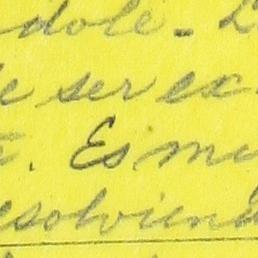 dole - L
e ser ex
. Es mu
esolviend